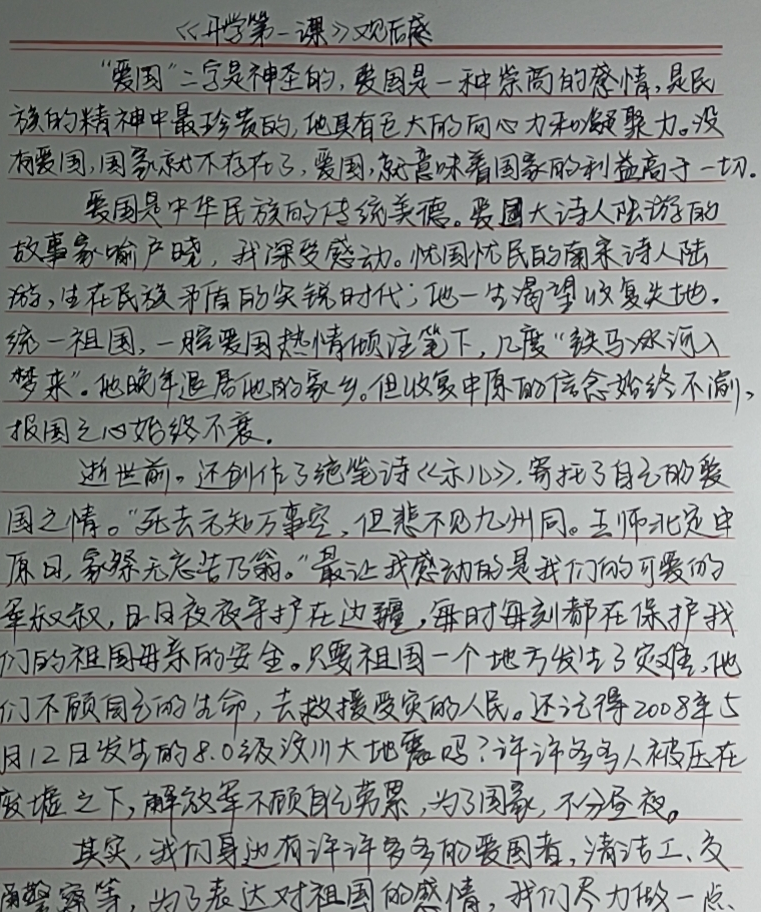 《开学第一课》观后感
“爱国”二字是神圣的,爱国是一种崇高的感情,是民
族的精神中最珍贵的,他具有巨大的向心力和凝聚力。没
有爱国,国家就不存在了,爱国,就意味着国家的利益高于一切.
爱国是中华民族的传统美德。爱国大诗人陆游的
故事家喻户晓,我深受感动。忧国忧民的南宋诗人陆
游,生在民族矛盾的尖锐时代;他一生渴望收复失地.
统一祖国,一腔爱国热情倾注笔下,几度“铁马冰河入
梦来”.他晚年退居他的家乡。但收复中原的信念始终不渝,
报国之心始终不衰.
逝世前。还创作了绝笔诗《示儿》,寄托了自己的爱
国之情。“死去元知万事空,但悲不见九州同。王师北定中
原日,家祭无忘告乃翁。”最让我感动的是我们的可爱的
军叔叔,日日夜夜守护在边疆,每时每刻都在保护我
们的祖国母亲的安全。只要祖国一个地方发生了灾难,他
们不顾自己的生命,去救援受灾的人民。还记得2008年5
月12日发生的8.0级汶川大地震吗?许许多多人被压在
废墟之下,解放军不顾自己劳累,为了国家,不分昼夜。
其实,我们身边有许许多多的爱国者,清洁工、交
通警察等,为了表达对祖国的感情,我们尽力做一点、